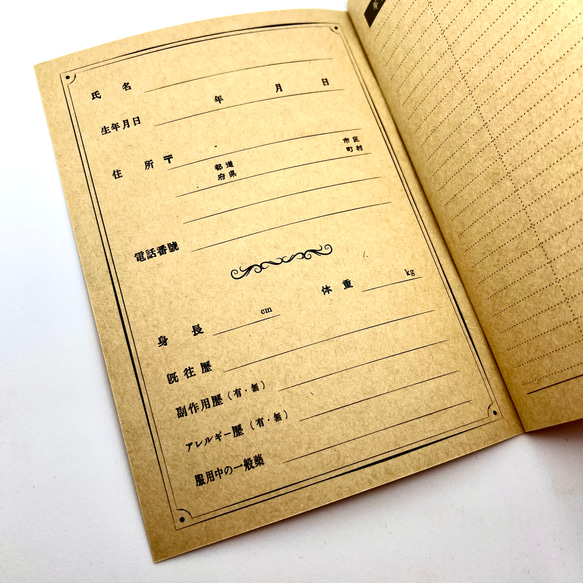 氏名
年 月 日
生年月日
住所 〒
都道府県 市区町村
電話番號
身長 cm 体重 kg
既往歴
副作用歴(有・無)
アレルギー歴(有・無)
服用中の一般薬